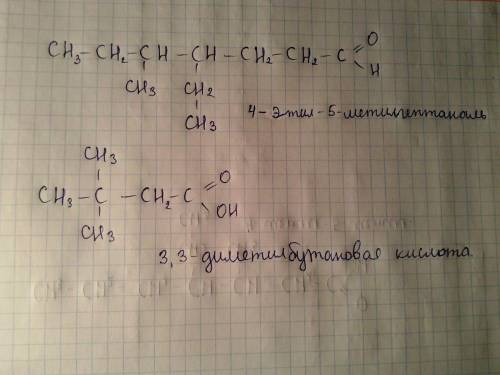 CH₃ - CH₂ - CH - CH - CH₂ - CH₂ - C
O
H
CH₃ CH₂
CH₃
4-этил-5-метилгептаналь
CH₃
CH₃ - C - CH₂ - C
O
OH
CH₃
3,3-диметилбутановая кислота